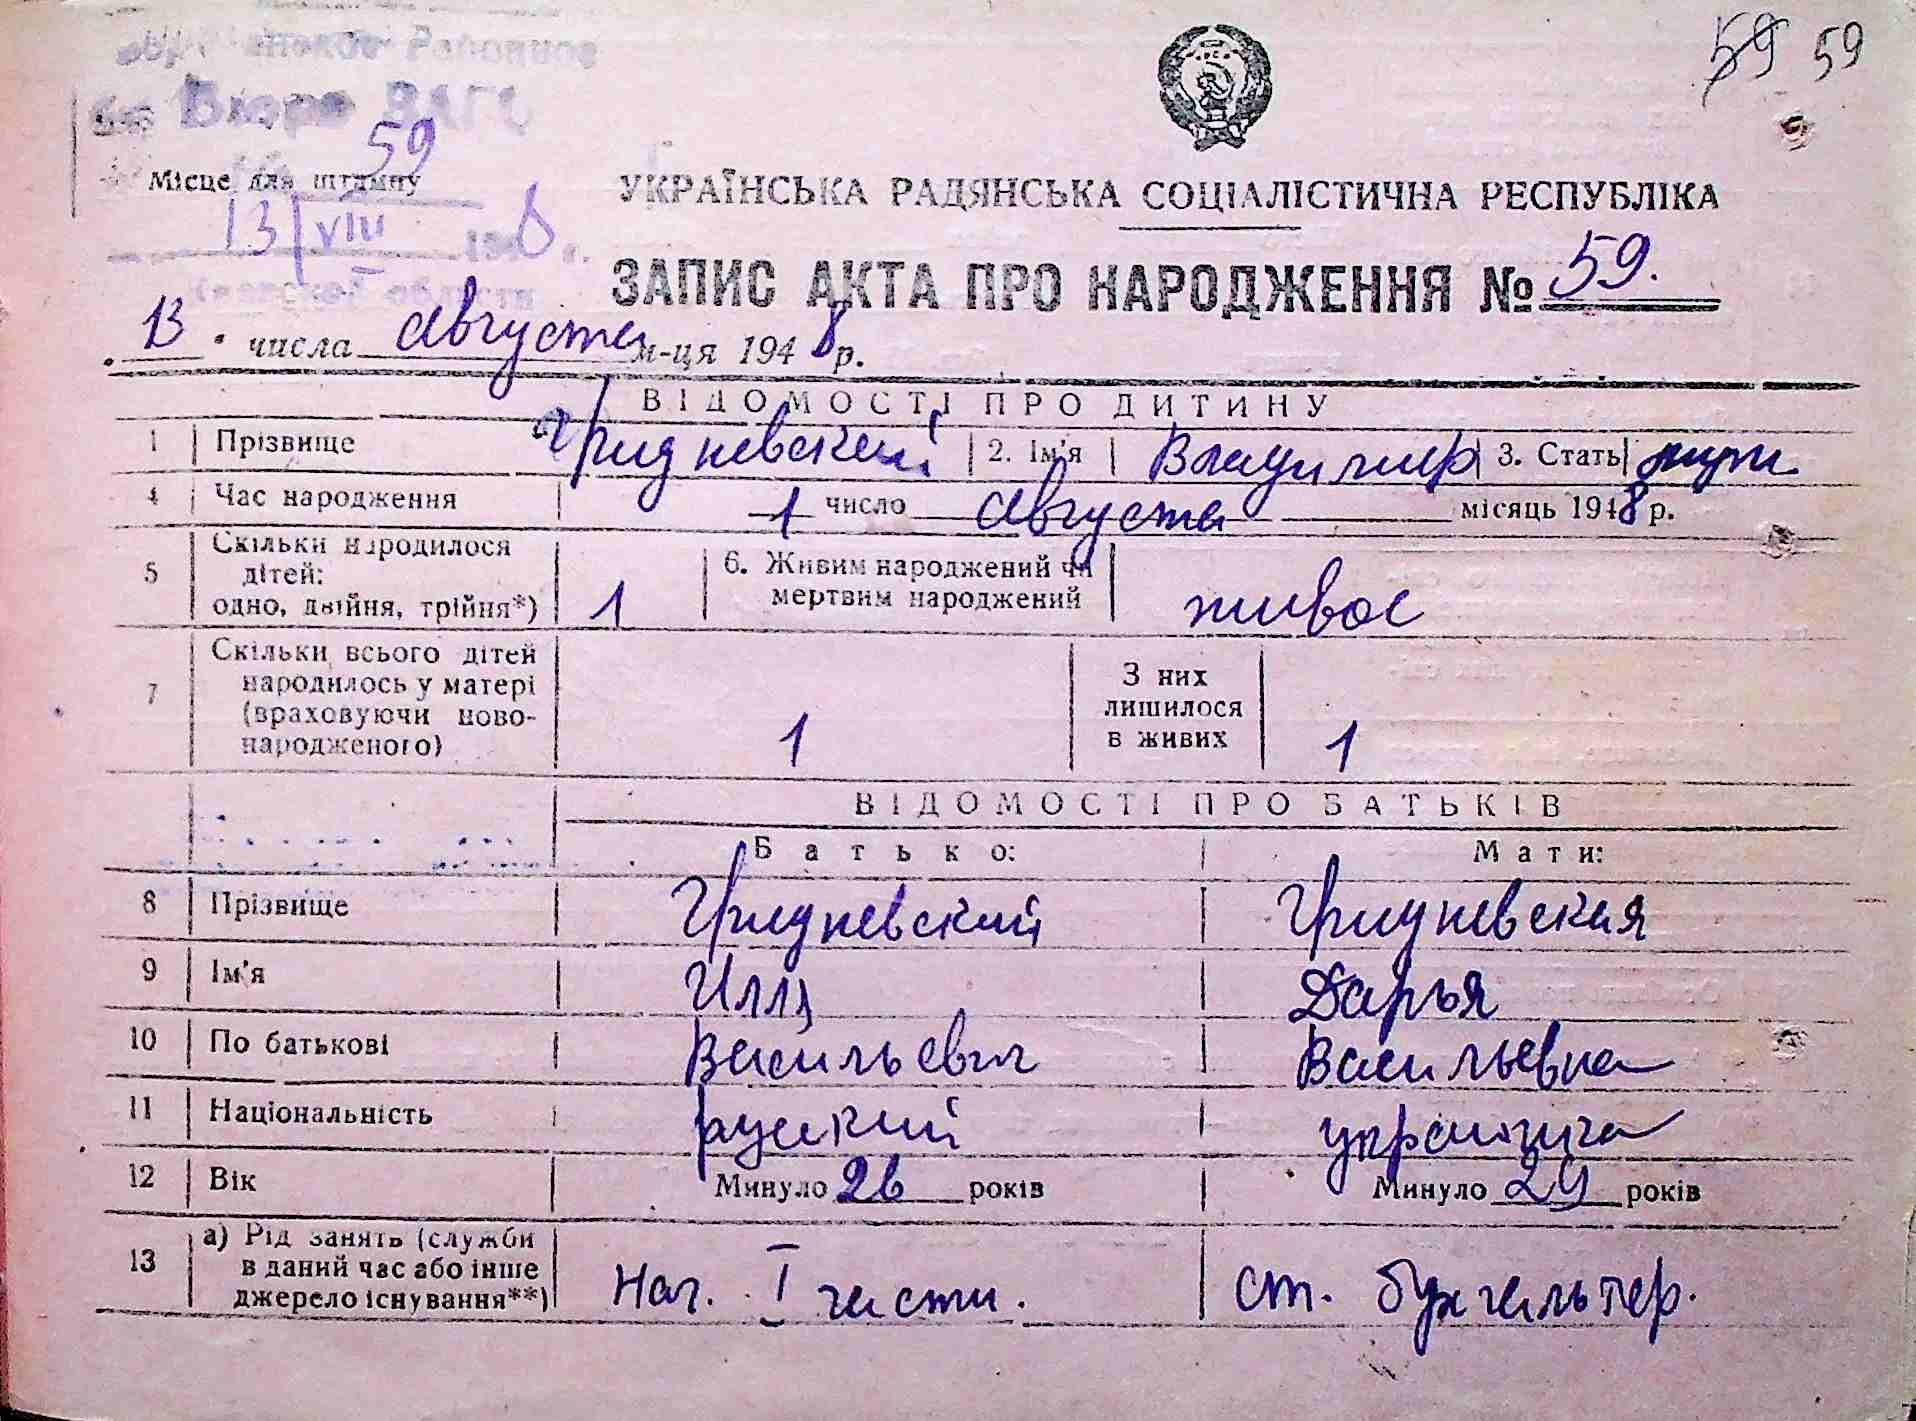 59 59
Районное
Бюро ЗАГС
59
Місце для штампу
13/VIII 1948 г.
области
УКРАЇНСЬКА РАДЯНСЬКА СОЦІАЛІСТИЧНА РЕСПУБЛІКА
ЗАПИС АКТА ПРО НАРОДЖЕННЯ № 59.
13 " числа августа м-ця 1948 р.
ВІДОМОСТІ ПРО ДИТИНУ
1 Прізвище Гридневский 2. Ім'я Владимир 3. Стать муж
4 Час народження 1 число августа місяць 1948 р.
5 Скільки народилося
дітей:
одно, двійня, трійня*) 1
6. Живим народжений чи
мертвим народжений живое
7 Скільки всього дітей
народилось у матері
(враховуючи ново-
народженого) 1
З них
лишилося
в живих 1
ВІДОМОСТІ ПРО БАТЬКІВ
Батько: Мати:
8 Прізвище Гридневский Гридневская
9 Ім'я Илля Дарья
10 По батькові Васильевич Васильевна
11 Національність руский украинка
12 Вік Минуло 26 років Минуло 29 років
13 а) Рід занять (служби
в даний час або інше
джерело існування**) Нач. I части. ст. бухгальтер.